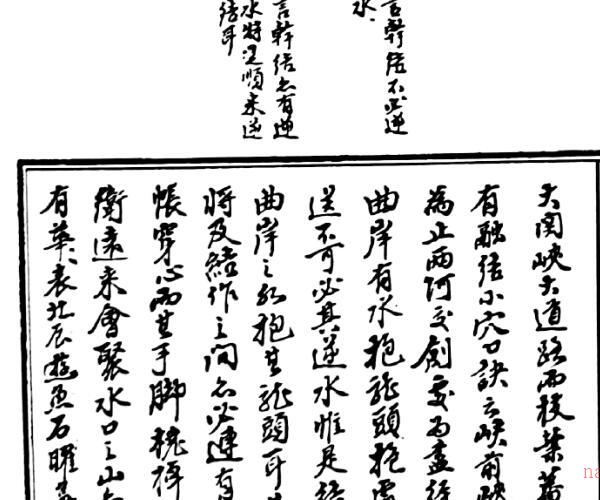 言幹結不必逆
水、
言幹結亦有逆
水特是順來逆
結耳
大関峽大道路兩枝葉蕃
有融结小穴口訣云峽前峽
為止兩河交劍處為盡結
曲岸有水抱龍頭抱處
送不可必其逆水惟是結
曲岸之水抱其龍頭耳
將及結作之间亦必連有
帳穿心而其手腳橈棹
衛遠來會聚水口之山
有華表北辰遊魚石曜